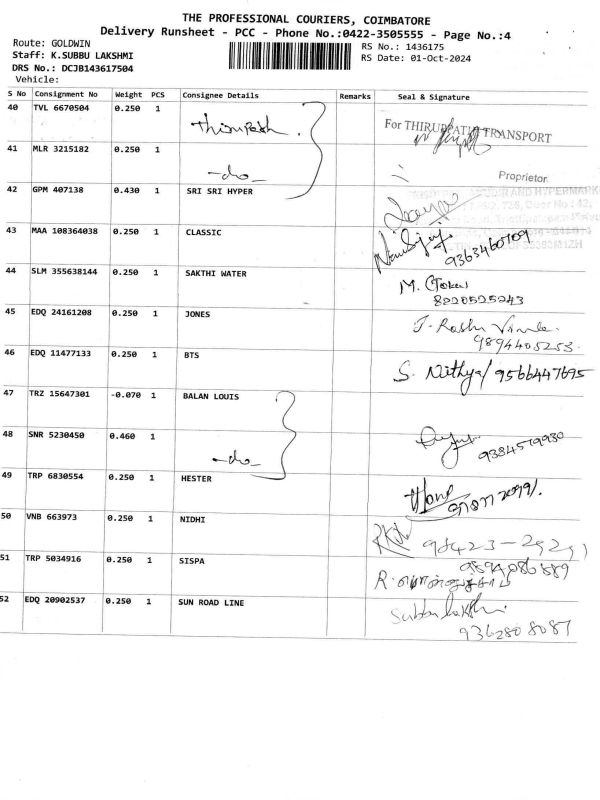 THE PROFESSIONAL COURIERS, COIMBATORE
Delivery Runsheet - PCC - Phone No.:0422-3505555 - Page No.:4
Route: GOLDWIN
RS No.: 1436175
Staff: K.SUBBU LAKSHMI
RS Date: 01-Oct-2024
DRS No.: DCJB143617504
Vehicle:
S No Consignment No Weight PCS Consignee Details Remarks Seal & Signature
40 TVL 6670504 0.250 1
For THIRUPPATHI TRANSPORT
41 MLR 3215182 0.250 1
-do-
Proprietor
42 GPM 407138 0.430 1 SRI SRI HYPER
43 MAA 108364038 0.250 1 CLASSIC
9363460709
44 SLM 355638144 0.250 1 SAKTHI WATER
M.
8220525243
45 EDQ 24161208 0.250 1 JONES
9894405253
46 EDQ 11477133 0.250 1 BTS S. Nithya/ 9566447695
47 TRZ 15647301 -0.070 1 BALAN LOUIS
48 SNR 5230450 0.460 1
-do-
9384579930
49 TRP 6830554 0.250 1 HESTER
50 VNB 663973 0.250 1 NIDHI
51 TRP 5034916 0.250 1 SISPA
9894086889
52 EDQ 20902537 0.250 1 SUN ROAD LINE
9362808087